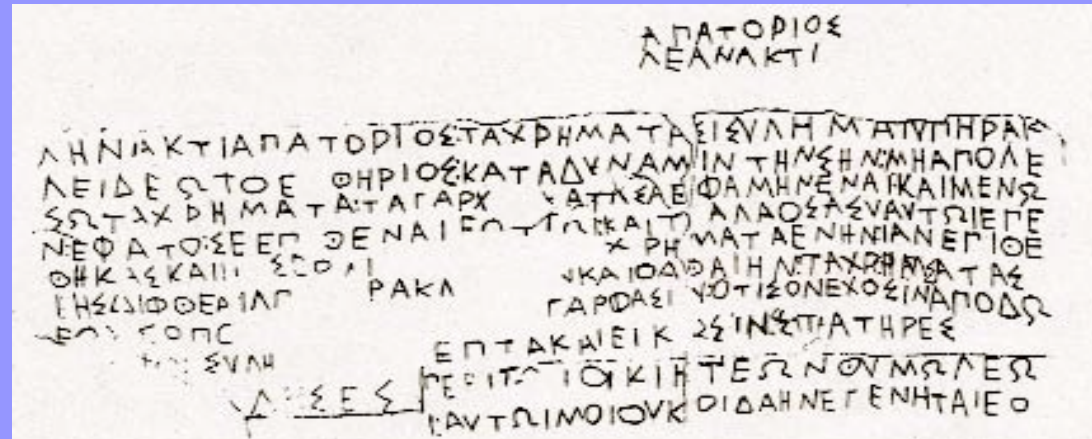 ΑΠΑΤΟΡΙΟΣ
ΛΕΑΝΑΚΤΙ
ΛΗΝΑΚΤΙΑΠΑΤΟΡΙΟΣΤΑΧΡΗΜΑΤΑΣΙΣΥΛΗΜΑΙΥΠΗΡΑΚ
ΛΕΙΔΕΩΤΟΕ ΘΗΡΙΟΣΚΑΤΑΔΥΝΑΜΙΝΤΗΝΣΗΝΜΗΑΠΟΛΕ
ΣΩΤΑΧΡΗΜΑΤΑΤΑΓΑΡΧ ΑΤΑΣΑΕΦΑΜΗΝΕΝΑΙΚΑΙΜΕΝΩ
ΝΕΦΑΤΟΣΕΕΠ ΘΕΝΑΙΕΩΤΤΩΙΚΑΙΤ ΑΛΑΟΣΑΣΥΑΥΤΩΙΕΠΕ
ΘΗΚΑΣΚΑΙ ΧΡΗΜΑΤΑΕΝΗΝΙΑΝΕΠΙΘΕ
ΙΗΣΔΙΦΘΕΡΙΑ ΡΑΚΛ ΚΑΙΟΑΘΑΙΗΝΤΑΧΡΗΜΑΤΑΣ
ΓΑΡΦΑΣΙΝΟΤΙΣΟΝΕΧΟΣΙΝΑΠΟΔΩ
ΣΥΛΗ ΕΠΤΑΚΑΙΕΙΚ ΣΙΝΣΤΑΤΗΡΕΣ
ΣΕΣ ΟΙΚΙΗΤΕΩΝΟΥΜΩΛΕΩ
ΑΥΤΩΙΜΟΙΟΥΚΟΙΔΑΗΝΕΓΕΝΗΤΑΙΕΟ